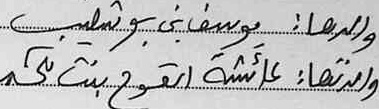 والدها: يوسف بن بوشعيب
والدتها: عائشة القوح بنت محمد